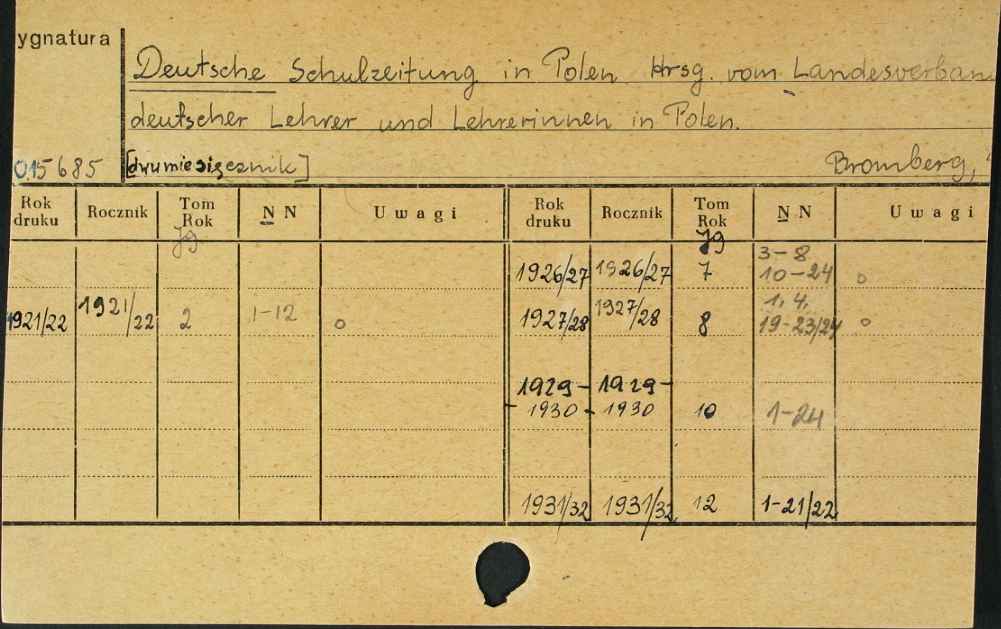 ygnatura
Deutsche Schulzeitung in Polen Hrsg. vom Landesverban
deutscher Lehrer und Lehrerinnen in Polen.
015685 [dwumiesięcznik] Bromberg,
Rok druku Rocznik Tom Rok N N Uwagi Rok druku Rocznik Tom Rok N N Uwagi
Jg Jg
1926/27 1926/27 7 3-8 10-24 o
1921/22 1921/22 2 1-12 o 1927/28 1927/28 8 1, 4, 19-23/24 o
1929- 1929-
- 1930- 1930 10 1-24
1931/32 1931/32 12 1-21/22